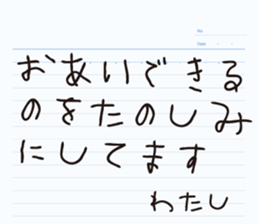 No.
Date ・ ・
おあいできる
のをたのしみ
にしてます
わたし